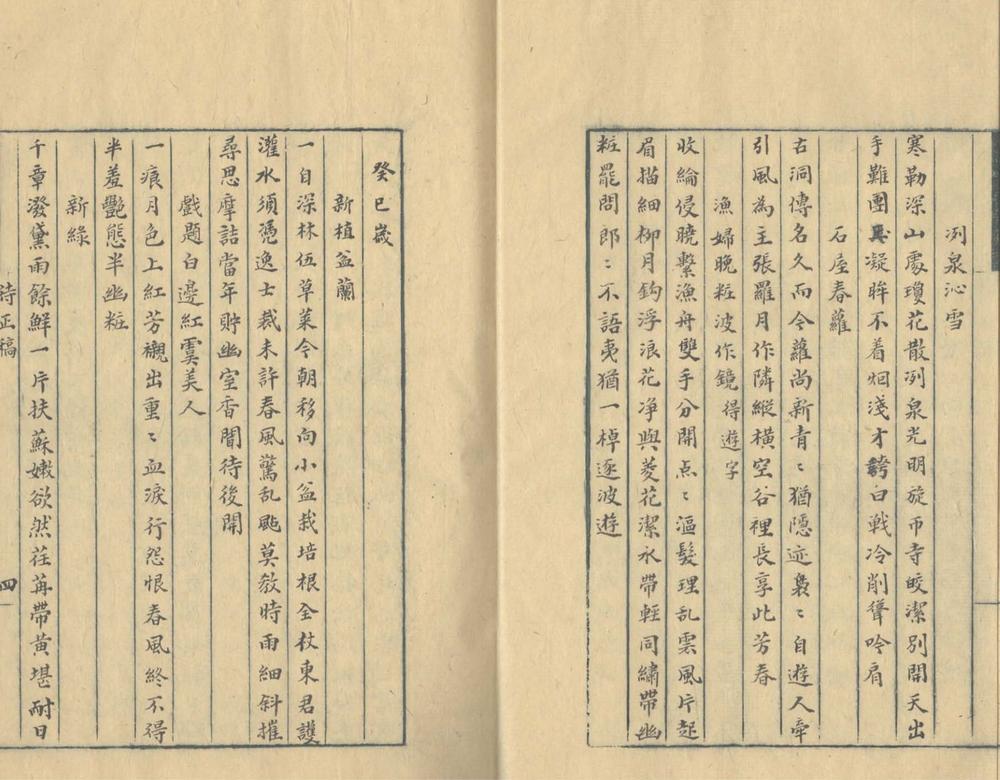 冽泉沁雪
寒勒深山處瓊花散冽泉光明旋帀寺皎潔別開天出
手難團凝眸不着烟淺才誇白戦冷削聳吟肩
石屋春蘿
古洞傳名久而今蘿尚新青〻猶隱迹裊〻自遊人牽
引風為主張羅月作隣縱橫空谷裡長享此芳春
漁婦晚粧波作鏡得遊字
收綸侵曉繫漁舟雙手分開点〻漚髮理乱雲風片起
眉描細柳月鈎浮浪花净與菱花潔水帶輕同繡帶幽
粧罷問郎〻不語夷猶一棹逐波遊
癸巳歲
新植盆蘭
一自深林伍草萊今朝移向小盆栽培根全杖東君護
灌水須憑逸士裁未許春風驚乱颭莫教時雨細斜摧
尋思摩詰當年貯幽室香聞待後開
戲題白邊紅虞美人
一痕月色上紅芳襯出重〻血淚行怨恨春風終不得
半羞艷態半幽粧
新綠
千章潑黛雨餘鮮一片扶蘇嫩欲然荏苒帶黃堪耐日
詩正稿
四